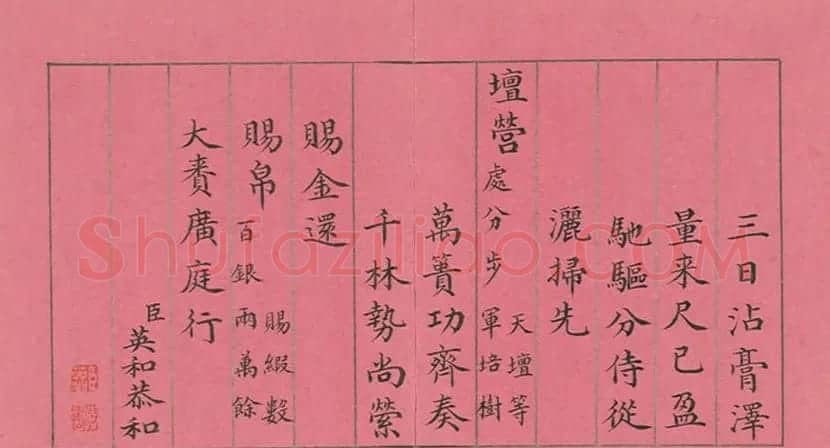 三日沾膏澤
量来尺已盈
馳驅分侍從
灑掃先
壇營
天壇等
處分步軍培樹
萬簣功齊奏
千林勢尚縈
賜金還
賜帛
賜緞數
百銀兩萬餘
大賚廣庭行
臣英和恭和
Shufaziliao.COM